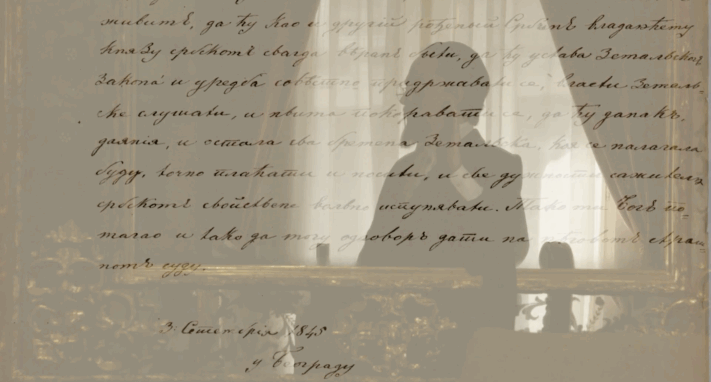 живитъ, да ћу као и другій рођеный Србинъ владаюћему
князу србскомъ свагда вѣранъ быти, да ћу устава Земальског
Закона и уредба совѣстно придржавати се, власти Земаль-
ске слушати, и њима покоравати се, да ћу данакъ,
даянія, и остала сва бремена Земальска, коя се налагала
буду, точно плаћати и носити, и све дужности
србскомъ свойствене вѣрно испунявати. Тако ми Богъ по-
магао и тако да могу одговоръ дати на нѣговомъ страш-
номъ суду.
3 Септемврія 1845
у Београду